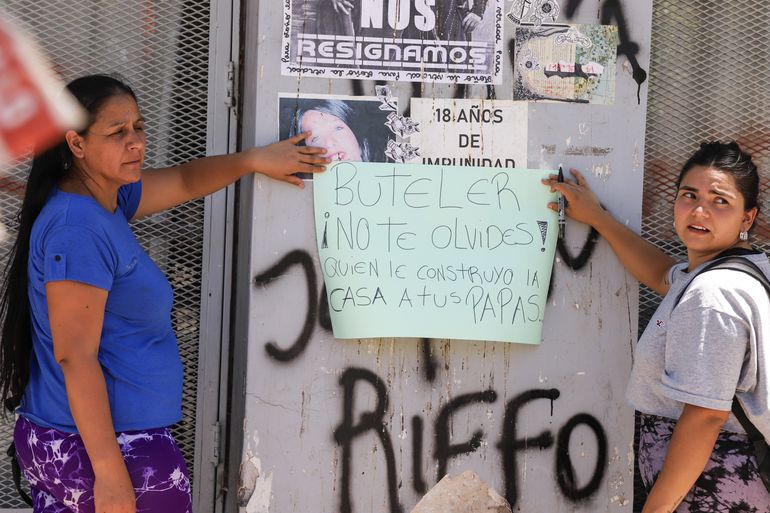 NOS
RESIGNAMOS
18 AÑOS
DE
IMPUNIDAD
BUTELER
¡NO TE OLVIDES!
QUIEN LE CONSTRUYO LA
CASA A TUS PAPAS.
RIFFO